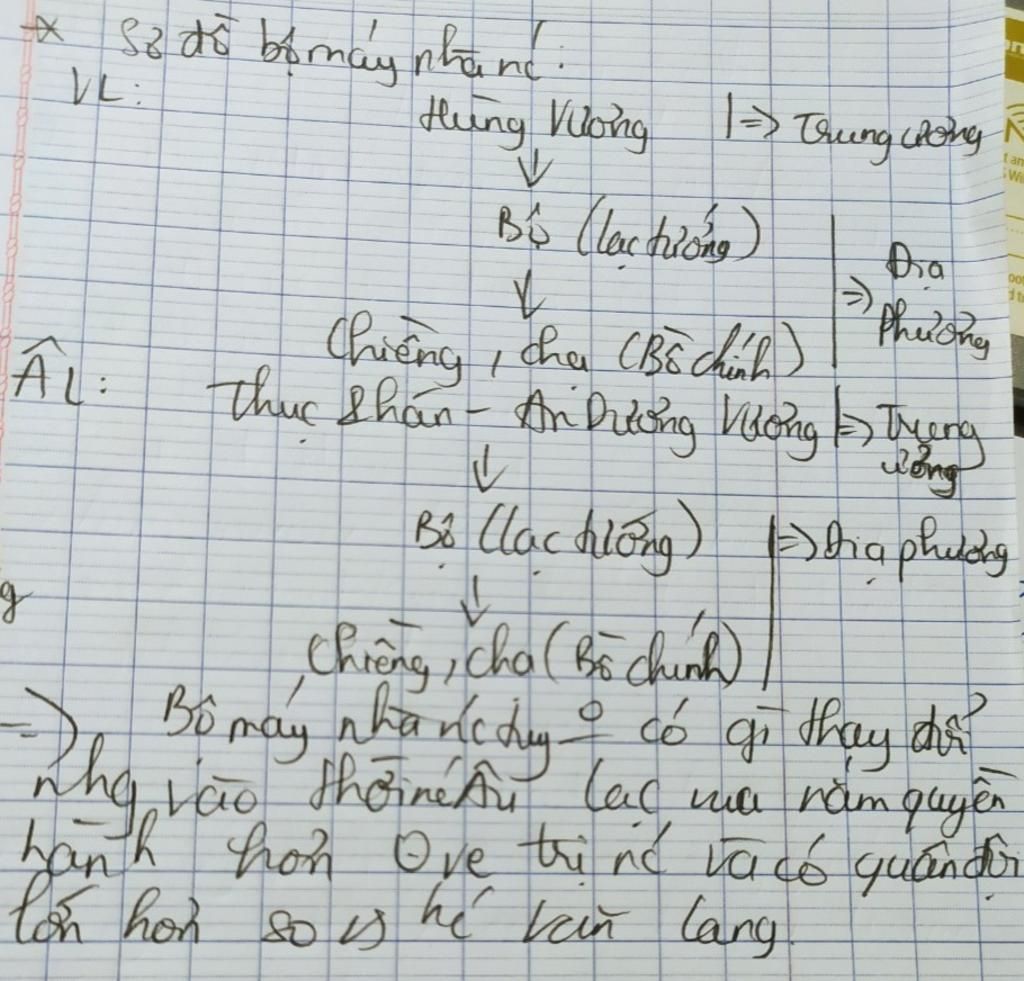 * Sơ đồ bộ máy nhà nc':
VL:
Hùng Vương |=> Trung ương
↓
Bộ (lạc tướng)
↓
Chiềng, chạ (Bồ chính)
=> Địa phương
ÂL: Thục Phán - An Dương Vương |=> Trung ương
↓
Bộ (lạc tướng) |=> Địa phương
↓
Chiềng, chạ (Bồ chính)
=> Bộ máy nhà nc' tuy có gì thay đổi
nhg vào thời nc' Âu Lạc vua nắm quyền
hành hơn trị nc' và có quân đội
lớn hơn so vs Văn Lang.